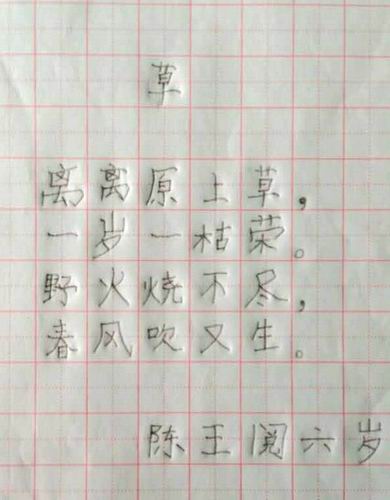 草
离离原上草，
一岁一枯荣。
野火烧不尽，
春风吹又生。
陈王阅六岁